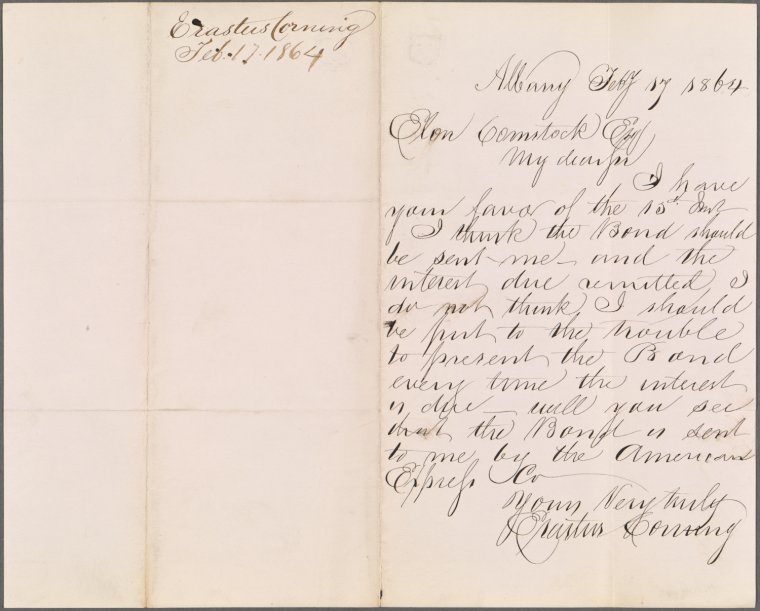 Erastus Corning
Feb. 17. 1864
Albany Feby 17 1864
Elon Comstock Esq
My dear Sir
I have
your favor of the 15th Inst
I think the Bond should
be sent me - and the
interest due remitted, I
do not think I should
be put to the trouble
to present the Bond
every time the interest
is due - will you see
that the Bond is sent
to me by the American
Express Co
Yours Very truly
Erastus Corning